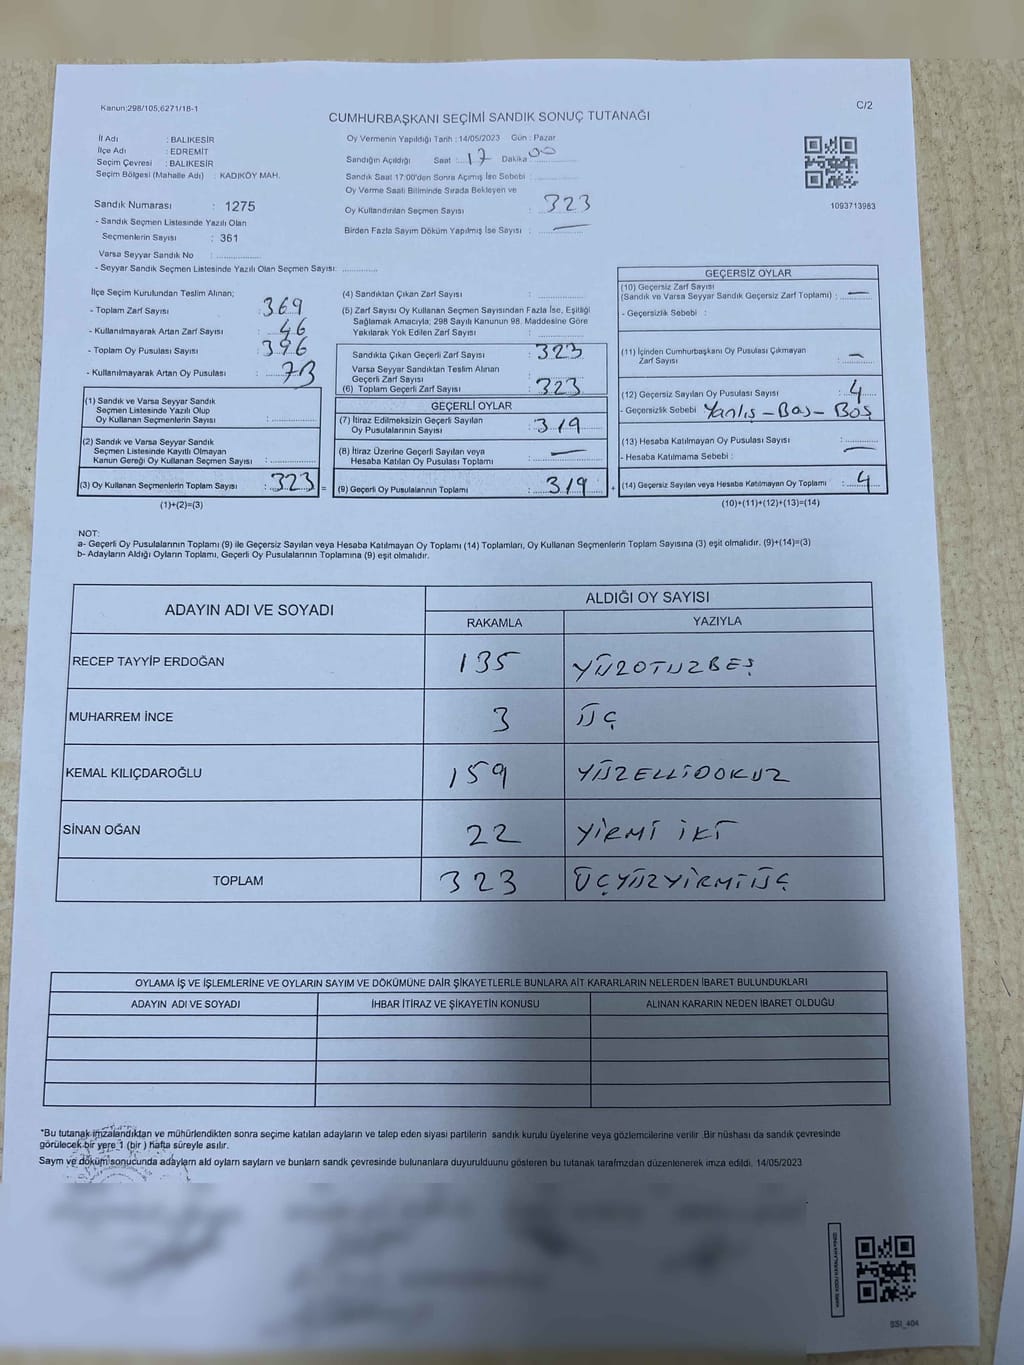 Kanun;298/105,6271/18-1
C/2
CUMHURBAŞKANI SEÇİMİ SANDIK SONUÇ TUTANAĞI
İl Adı : BALIKESİR
İlçe Adı : EDREMİT
Seçim Çevresi : BALIKESİR
Seçim Bölgesi (Mahalle Adı) : KADIKÖY MAH.
Sandık Numarası : 1275
- Sandık Seçmen Listesinde Yazılı Olan
Seçmenlerin Sayısı : 361
Varsa Seyyar Sandık No :
- Seyyar Sandık Seçmen Listesinde Yazılı Olan Seçmen Sayısı:
Oy Vermenin Yapıldığı Tarih : 14/05/2023 Gün : Pazar
Sandığın Açıldığı Saat : 17 Dakika 00
Sandık Saat 17:00'den Sonra Açımış İse Sebebi :
Oy Verme Saati Bitiminde Sırada Bekleyen ve
Oy Kullandırılan Seçmen Sayısı : 323
Birden Fazla Sayım Döküm Yapılmış İse Sayısı : —
1093713983
İlçe Seçim Kurulundan Teslim Alınan;
- Toplam Zarf Sayısı : 369
- Kullanılmayarak Artan Zarf Sayısı : 46
- Toplam Oy Pusulası Sayısı : 396
- Kullanılmayarak Artan Oy Pusulası : 73
(1) Sandık ve Varsa Seyyar Sandık
Seçmen Listesinde Yazılı Olup
Oy Kullanan Seçmenlerin Sayısı :
(2) Sandık ve Varsa Seyyar Sandık
Seçmen Listesinde Kayıtlı Olmayan
Kanun Gereği Oy Kullanan Seçmen Sayısı :
(3) Oy Kullanan Seçmenlerin Toplam Sayısı : 323 =
(1)+(2)=(3)
(4) Sandıktan Çıkan Zarf Sayısı :
(5) Zarf Sayısı Oy Kullanan Seçmen Sayısından Fazla İse, Eşitliği
Sağlamak Amacıyla; 298 Sayılı Kanunun 98. Maddesine Göre
Yakılarak Yok Edilen Zarf Sayısı :
Sandıkta Çıkan Geçerli Zarf Sayısı : 323
Varsa Seyyar Sandıktan Teslim Alınan
Geçerli Zarf Sayısı
(6) Toplam Geçerli Zarf Sayısı : 323
GEÇERLİ OYLAR
(7) İtiraz Edilmeksizin Geçerli Sayılan
Oy Pusulalarının Sayısı : 319
(8) İtiraz Üzerine Geçerli Sayılan veya
Hesaba Katılan Oy Pusulası Toplamı : —
(9) Geçerli Oy Pusulalarının Toplamı : 319 +
GEÇERSİZ OYLAR
(10) Geçersiz Zarf Sayısı
(Sandık ve Varsa Seyyar Sandık Geçersiz Zarf Toplamı) : —
- Geçersizlik Sebebi :
(11) İçinden Cumhurbaşkanı Oy Pusulası Çıkmayan
Zarf Sayısı : —
(12) Geçersiz Sayılan Oy Pusulası Sayısı : 4
- Geçersizlik Sebebi Yanlış-Bas-Boş
(13) Hesaba Katılmayan Oy Pusulası Sayısı : —
- Hesaba Katılmama Sebebi :
(14) Geçersiz Sayılan veya Hesaba Katılmayan Oy Toplamı : 4
(10)+(11)+(12)+(13)=(14)
NOT:
a- Geçerli Oy Pusulalarının Toplamı (9) ile Geçersiz Sayılan veya Hesaba Katılmayan Oy Toplamı (14) Toplamları, Oy Kullanan Seçmenlerin Toplam Sayısına (3) eşit olmalıdır. (9)+(14)=(3)
b- Adayların Aldığı Oyların Toplamı, Geçerli Oy Pusulalarının Toplamına (9) eşit olmalıdır.
ADAYIN ADI VE SOYADI
ALDIĞI OY SAYISI
RAKAMLA YAZIYLA
RECEP TAYYİP ERDOĞAN 135 YÜZOTUZBEŞ
MUHARREM İNCE 3 ÜÇ
KEMAL KILIÇDAROĞLU 159 YÜZELLİDOKUZ
SİNAN OĞAN 22 YİRMİ İKİ
TOPLAM 323 ÜÇYÜZYİRMİÜÇ
OYLAMA İŞ VE İŞLEMLERİNE VE OYLARIN SAYIM VE DÖKÜMÜNE DAİR ŞİKAYETLERLE BUNLARA AİT KARARLARIN NELERDEN İBARET BULUNDUKLARI
ADAYIN ADI VE SOYADI İHBAR İTİRAZ VE ŞİKAYETİN KONUSU ALINAN KARARIN NEDEN İBARET OLDUĞU
*Bu tutanak imzalandıktan ve mühürlendikten sonra seçime katılan adayların ve talep eden siyasi partilerin sandık kurulu üyelerine veya gözlemcilerine verilir .Bir nüshası da sandık çevresinde
görülecek bir yere 1 (bir ) hafta süreyle asılır.
Saym ve döküm sonucunda adaylarn ald oylarn saylarn ve bunlarn sandk çevresinde bulunanlara duyurulduunu gösteren bu tutanak tarafmzdan düzenlenerek imza edildi. 14/05/2023
SSI_404